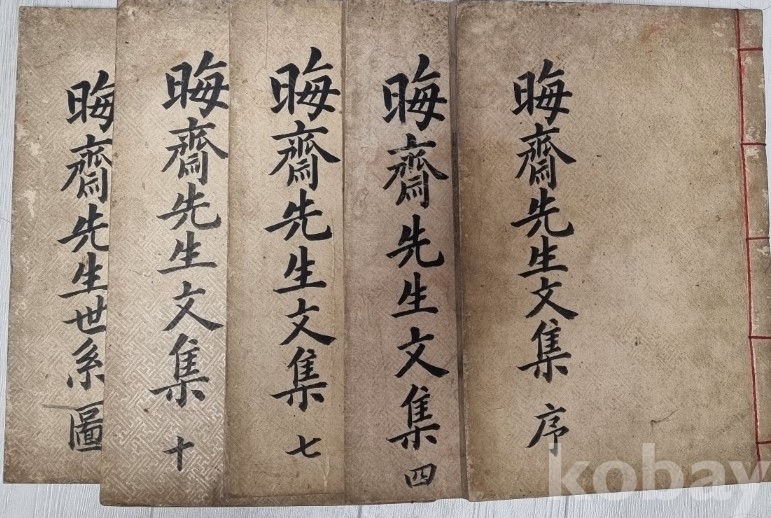 晦齋先生文集 序
晦齋先生文集 四
晦齋先生文集 七
晦齋先生文集 十
晦齋先生世系圖
kobay